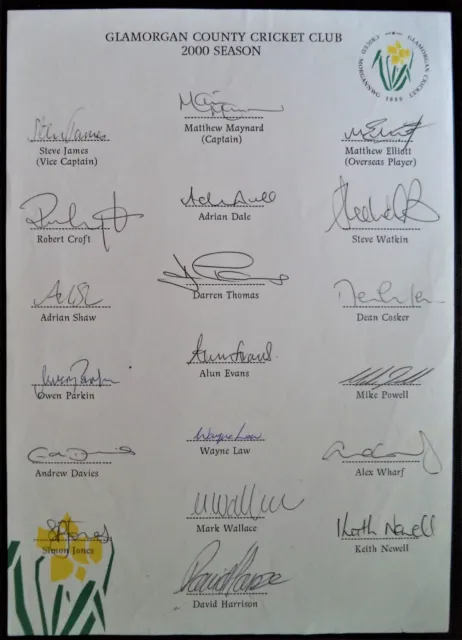 GLAMORGAN COUNTY CRICKET CLUB
2000 SEASON
GLAMORGAN CRICKET
CRICED MORGANNWG
1888
Matthew Maynard
(Captain)
Steve James
(Vice Captain)
Matthew Elliott
(Overseas Player)
Robert Croft
Adrian Dale
Steve Watkin
Adrian Shaw
Darren Thomas
Dean Cosker
Owen Parkin
Alun Evans
Mike Powell
Andrew Davies
Wayne Law
Alex Wharf
Simon Jones
Mark Wallace
Keith Newell
David Harrison